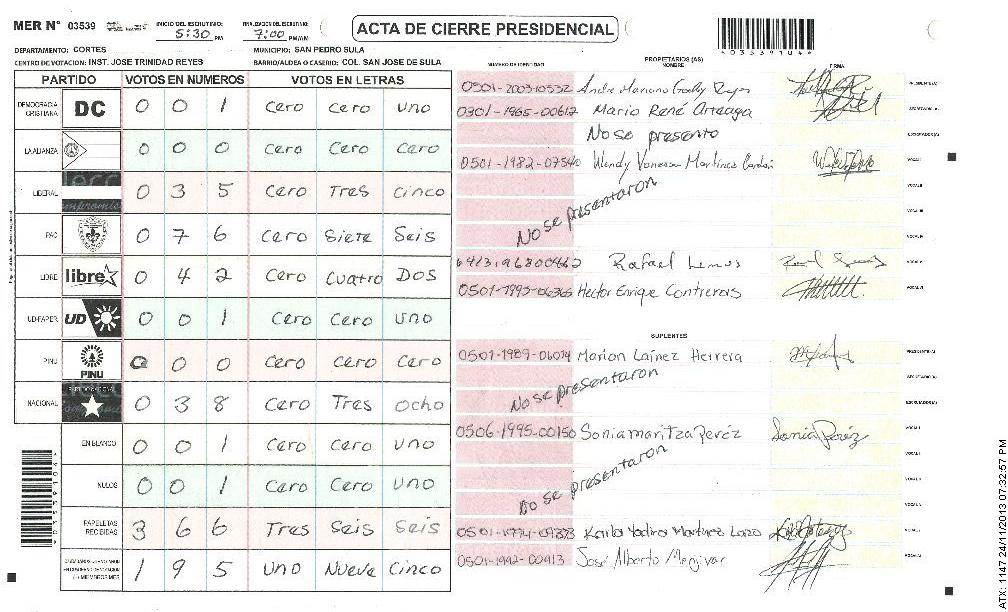 MER N° 03539 INICIO DEL ESCRUTINIO: 5:30 PM FINALIZACION DEL ESCRUTINIO: 7:00 PM/AM
ACTA DE CIERRE PRESIDENCIAL
*03539104*
DEPARTAMENTO: CORTES MUNICIPIO: SAN PEDRO SULA
CENTRO DE VOTACION: INST. JOSE TRINIDAD REYES BARRIO/ALDEA O CASERIO: COL. SAN JOSE DE SULA
PARTIDO VOTOS EN NUMEROS VOTOS EN LETRAS
DEMOCRACIA CRISTIANA DC 0 0 1 Cero Cero uno
LA ALIANZA 0 0 0 Cero Cero Cero
LIBERAL 0 3 5 Cero Tres cinco
PAC 0 7 6 Cero Siete Seis
LIBRE libre 0 4 2 Cero Cuatro DOS
UD-FAPER UD 0 0 1 Cero Cero uno
PINU PINU 0 0 0 Cero Cero Cero
NACIONAL 0 3 8 Cero Tres ocho
EN BLANCO 0 0 1 Cero Cero uno
NULOS 0 0 1 Cero Cero uno
PAPELETAS RECIBIDAS 3 6 6 Tres Seis Seis
1 9 5 uno Nueve Cinco
NUMERO DE IDENTIDAD PROPIETARIOS (AS) NOMBRE FIRMA
0501-2003-10532 PRESIDENTE(A)
0301-1965-00612 Mario René Arteaga SECRETARIO(A)
No se presento ESCRUTADOR(A)
0501-1982-07540 Wendy Vanessa Martinez VOCAL I
VOCAL II
No se presentaron VOCAL III
VOCAL IV
Rafael Lemus VOCAL V
0501-1993-06365 Hector Enrique Contreras VOCAL VI
SUPLENTES
0501-1989-06014 Marion Laínez Herrera PRESIDENTE(A)
No se presentaron SECRETARIO(A)
ESCRUTADOR(A)
0506-1995-00150 Sonia maritza Peréz Sonia Peréz VOCAL I
VOCAL II
No se presentaron VOCAL III
VOCAL IV
Karla Martinez VOCAL V
0501-1992-00913 José Alberto Menjivar VOCAL VI
ATX: 1147 24/11/2013 07:32:57 PM